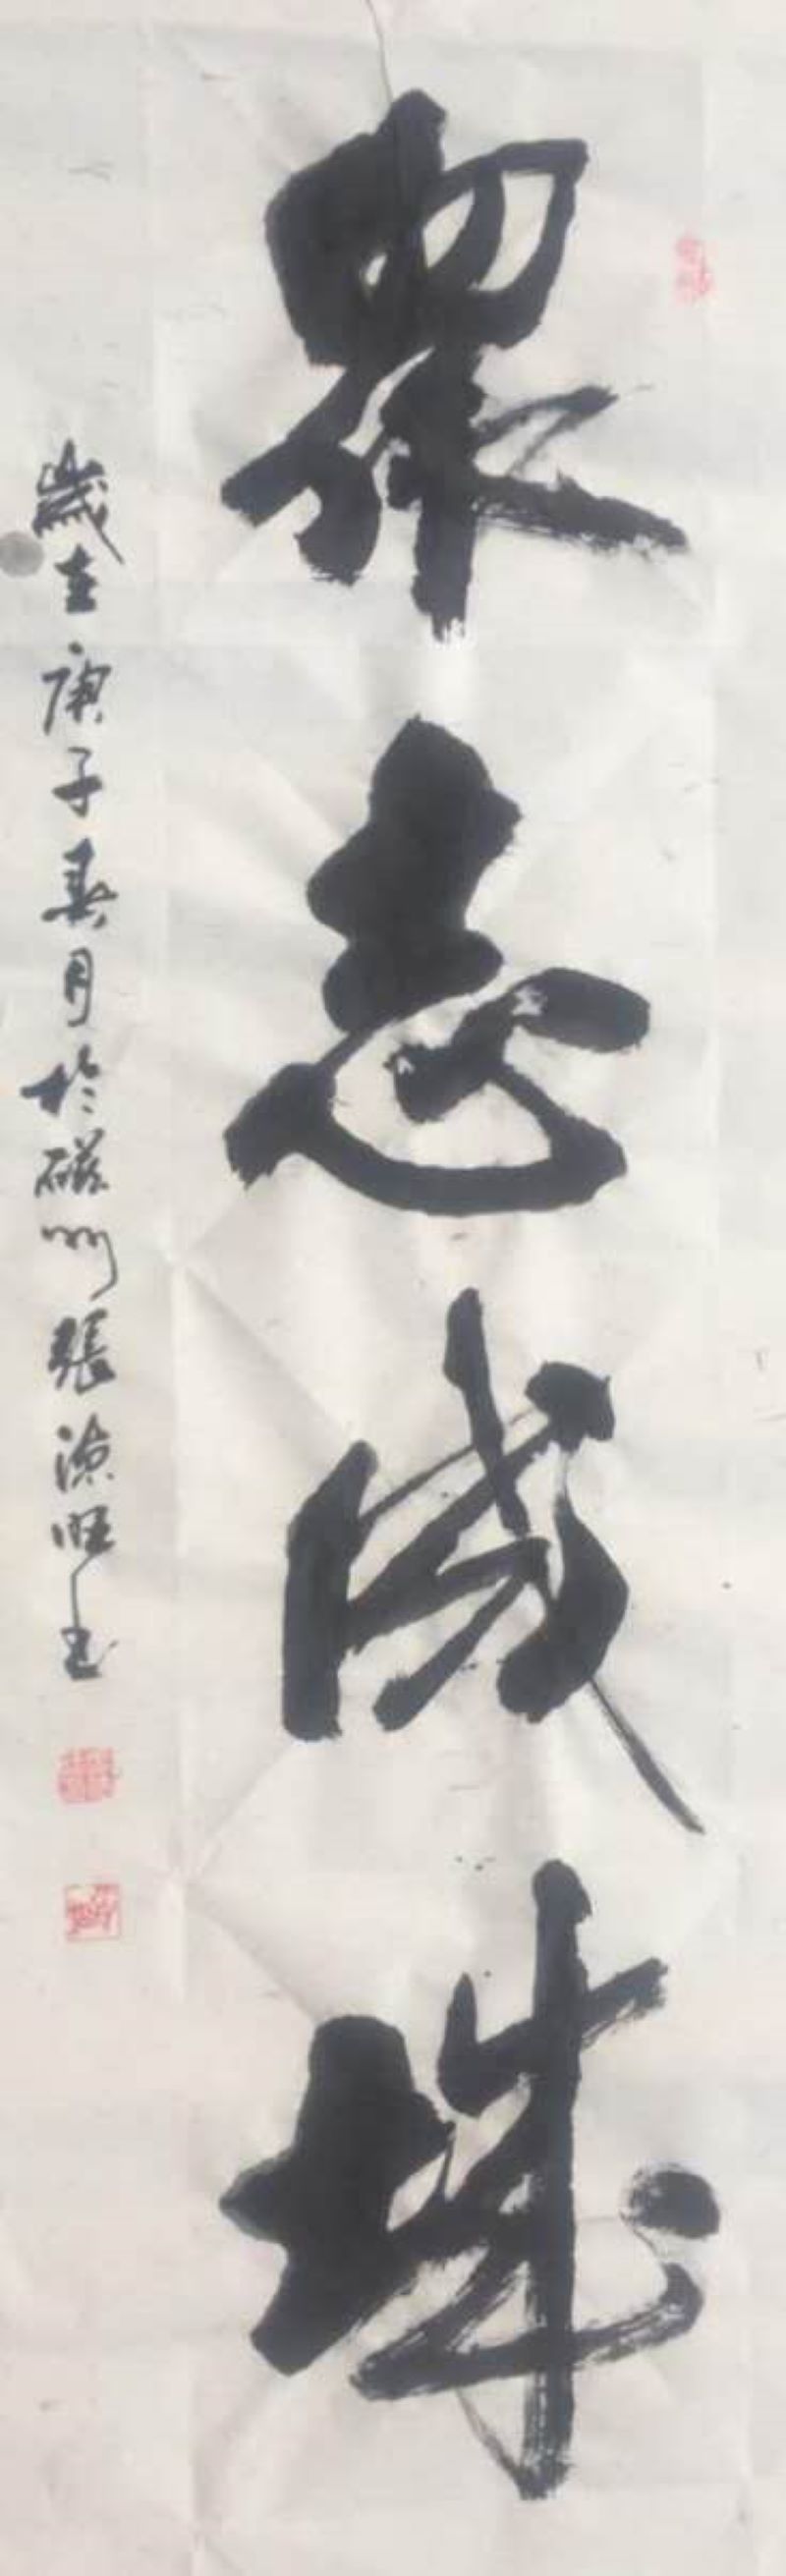 眾志成城
歲在庚子春月於磁州張德旺書